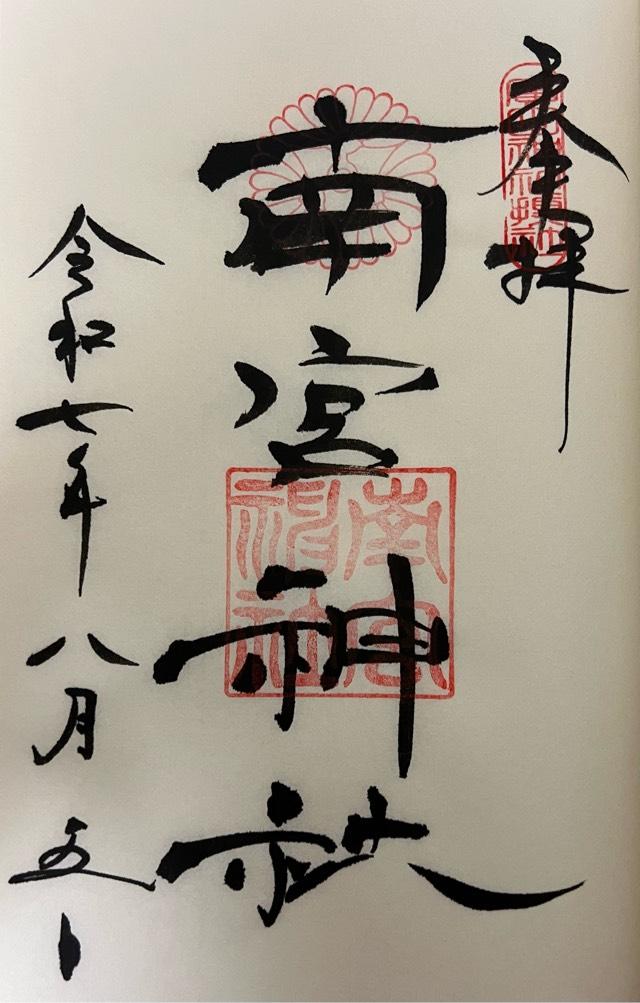 奉拝
南宮神社
南宮神社
令和七年八月五日